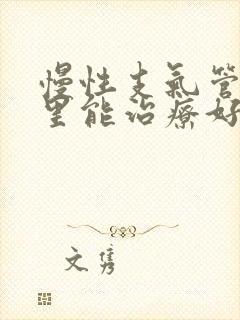 慢性支氣管
里能治療好
文隽